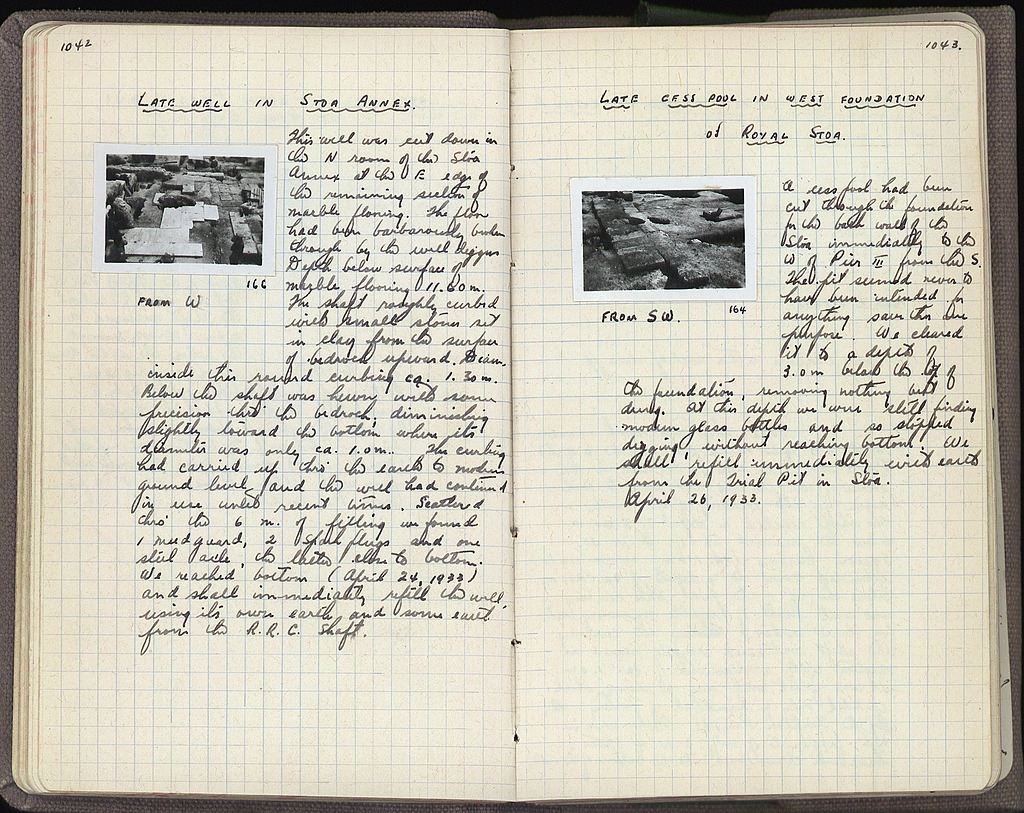 1042
LATE WELL IN STOA ANNEX.
This well was cut down in
the N room of the Stoa
Annex at the E edge of
the remaining section of
marble flooring. The floor
had been barbarously broken
through by the well diggers
Depth below surface of
marble flooring 11.60 m.
The shaft roughly curbed
with small stones set
in clay from the surface
of bedrock upward. Diam.
166
FROM W
inside this round curbing ca. 1.30 m.
Below the shaft was hewn with some
precision thro' the bedrock, diminishing
slightly toward the bottom where its
diameter was only ca. 1.0 m. The curbing
had carried up thro' the earth to modern
ground level and the well had continued
in use until recent times. Scattered
thro' the 6 m. of filling we found
1 mudguard, 2 spark plugs and one
steel axle, the latter close to bottom.
We reached bottom (April 24, 1933)
and shall immediately refill the well,
using its own earth and some earth
from the R.R.C. Shaft.
1043.
LATE CESS POOL IN WEST FOUNDATION
of ROYAL STOA.
A cess pool had been
cut through the foundation
for the back wall of the
Stoa immediately to the
W of Pier III from the S.
The pit seemed never to
have been intended for
anything save this one
purpose. We cleared
it to a depth of
3.0 m below the top of
164
FROM SW.
the foundation, removing nothing but
dung. At this depth we were still finding
modern glass bottles and so stopped
digging without reaching bottom. We
shall refill immediately with earth
from the Trial Pit in Stoa.
April 26, 1933.